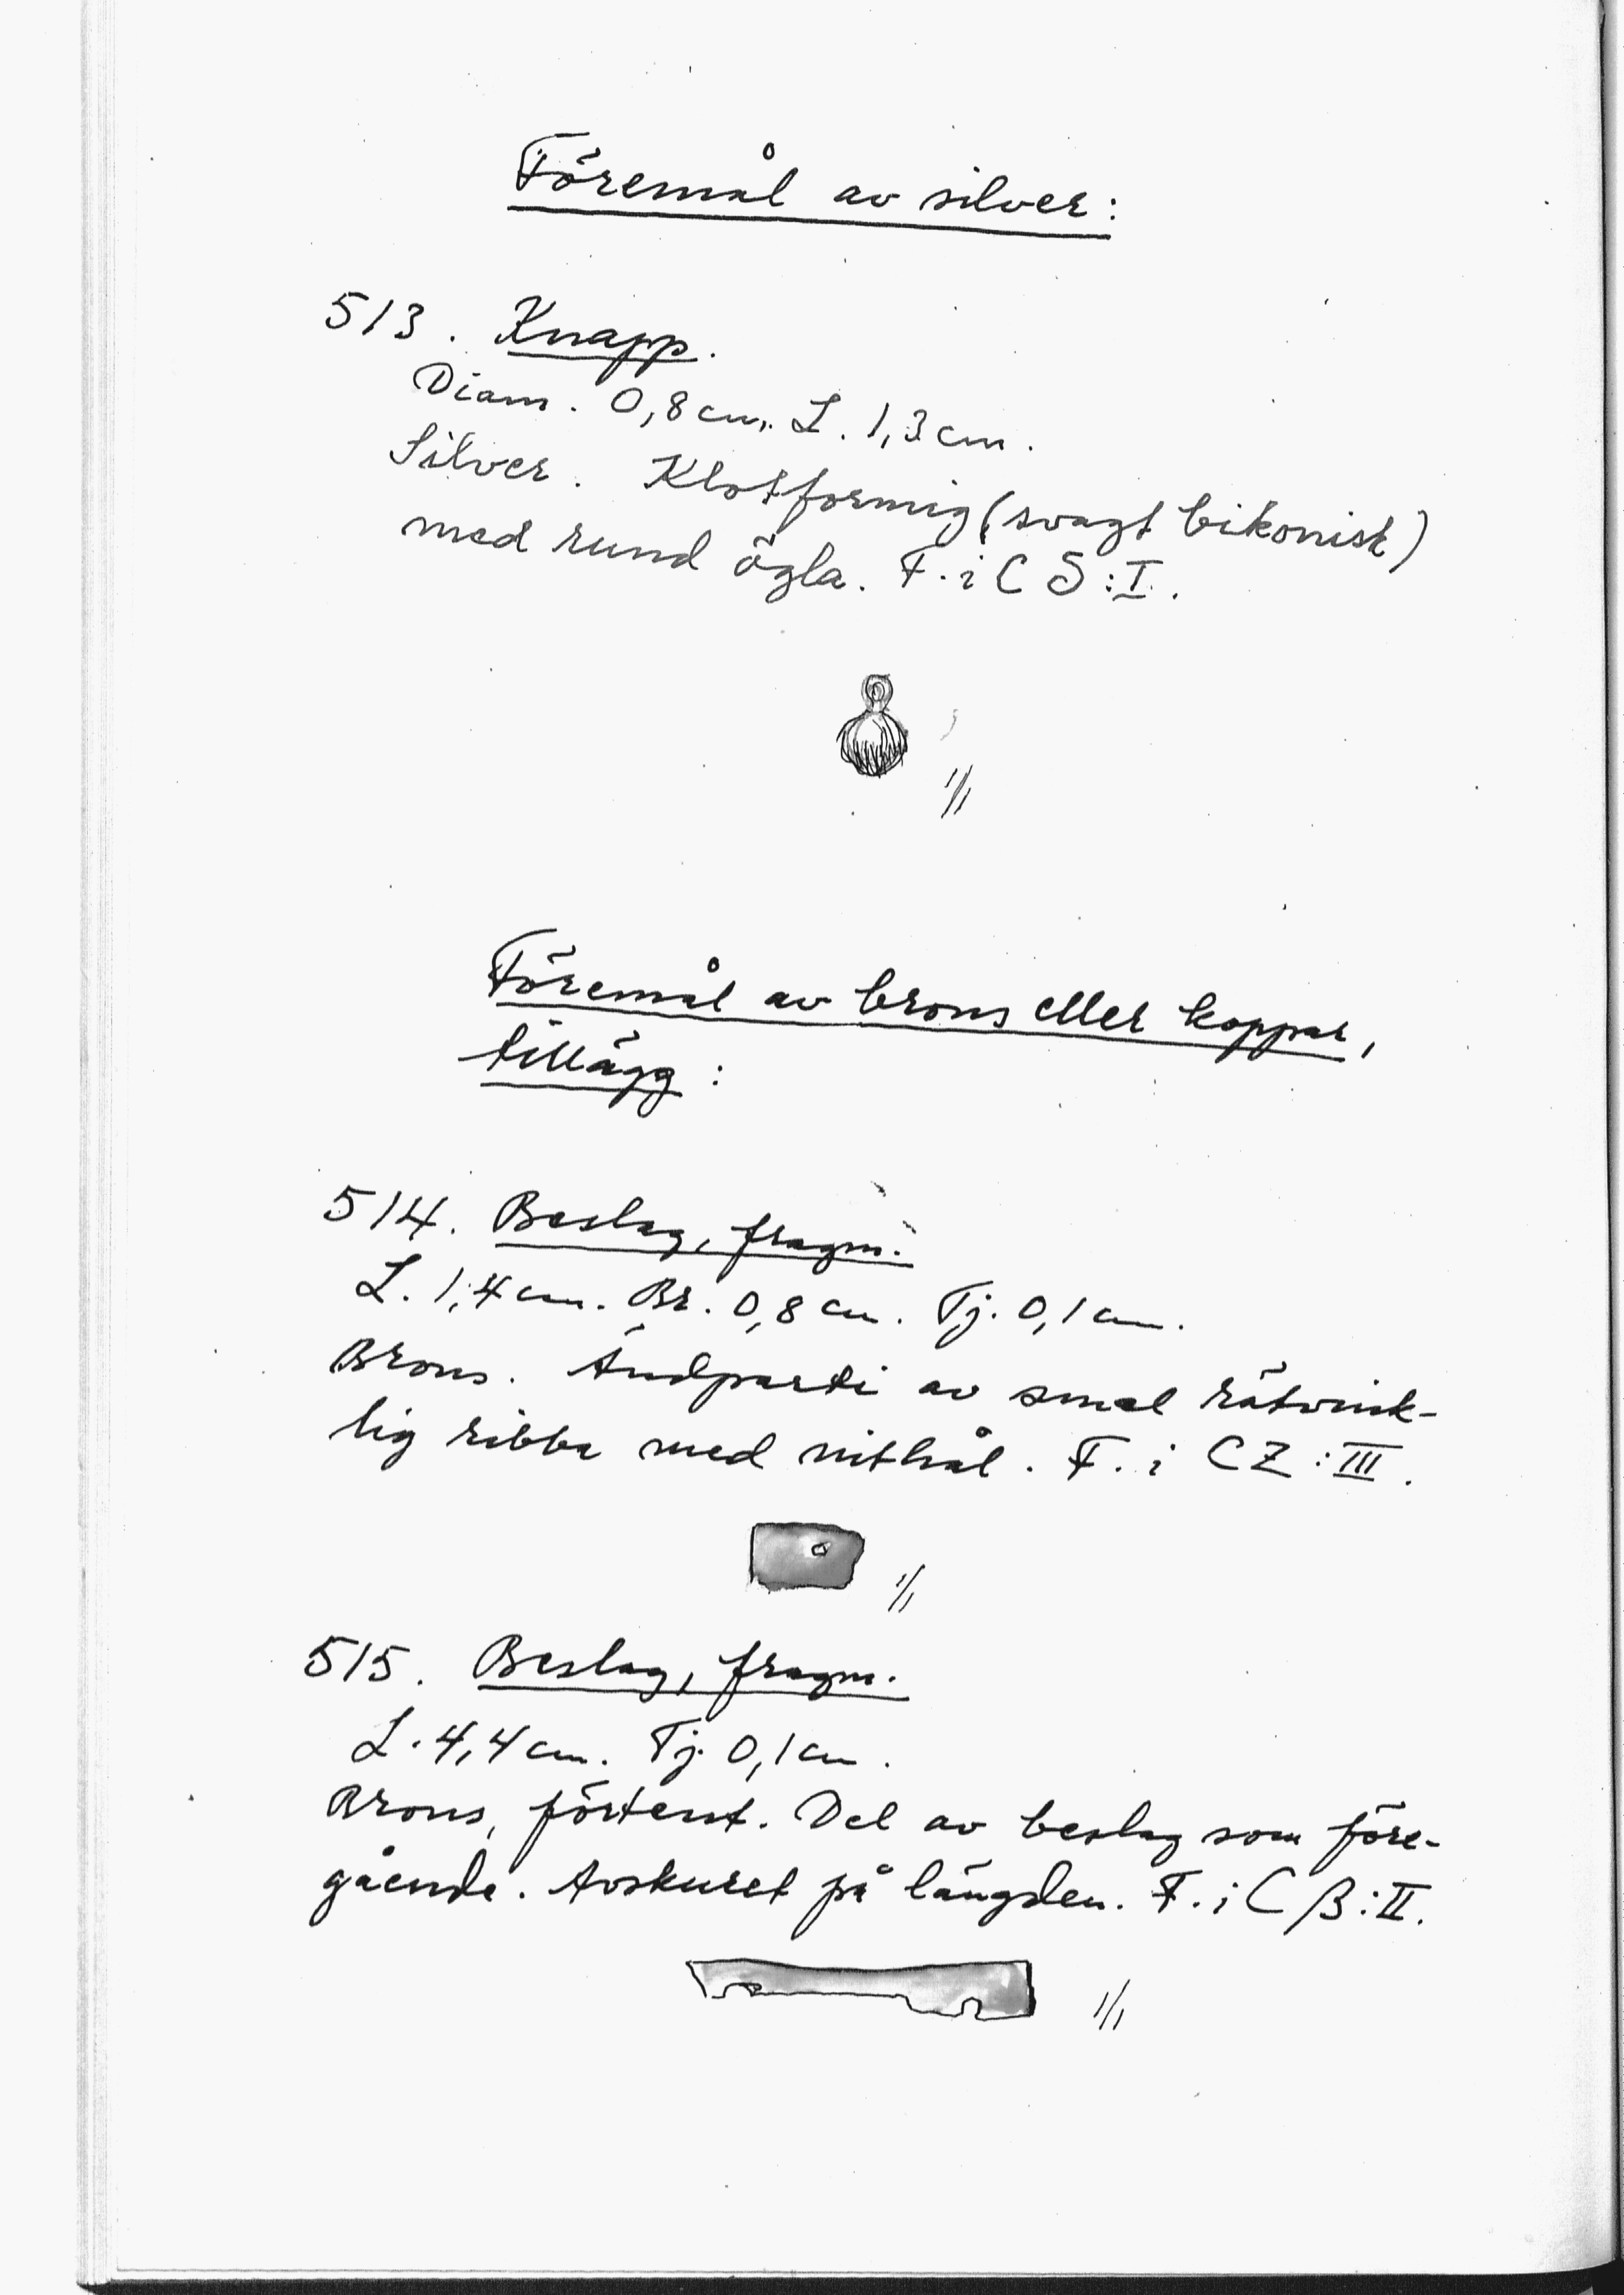 Föremål av silver:
513. Knapp.
Diam. 0,8 cm. L. 1,3 cm.
Silver. Klotformig (svagt bikonisk)
med rund ögla. F. i C S:I.
1/1
Föremål av brons eller koppar,
tillägg:
514. Beslag, fragm.
L. 1,4 cm. Br. 0,8 cm. Tj. 0,1 cm.
Brons. Ändparti av smal rätvink-
lig ribba med nithål. F. i CZ:III.
1/1
515. Beslag, fragm.
L. 4,4 cm. Tj. 0,1 cm.
Brons, förtent. Del av beslag som före-
gående. Avskuret på längden. F. i C β:II.
1/1